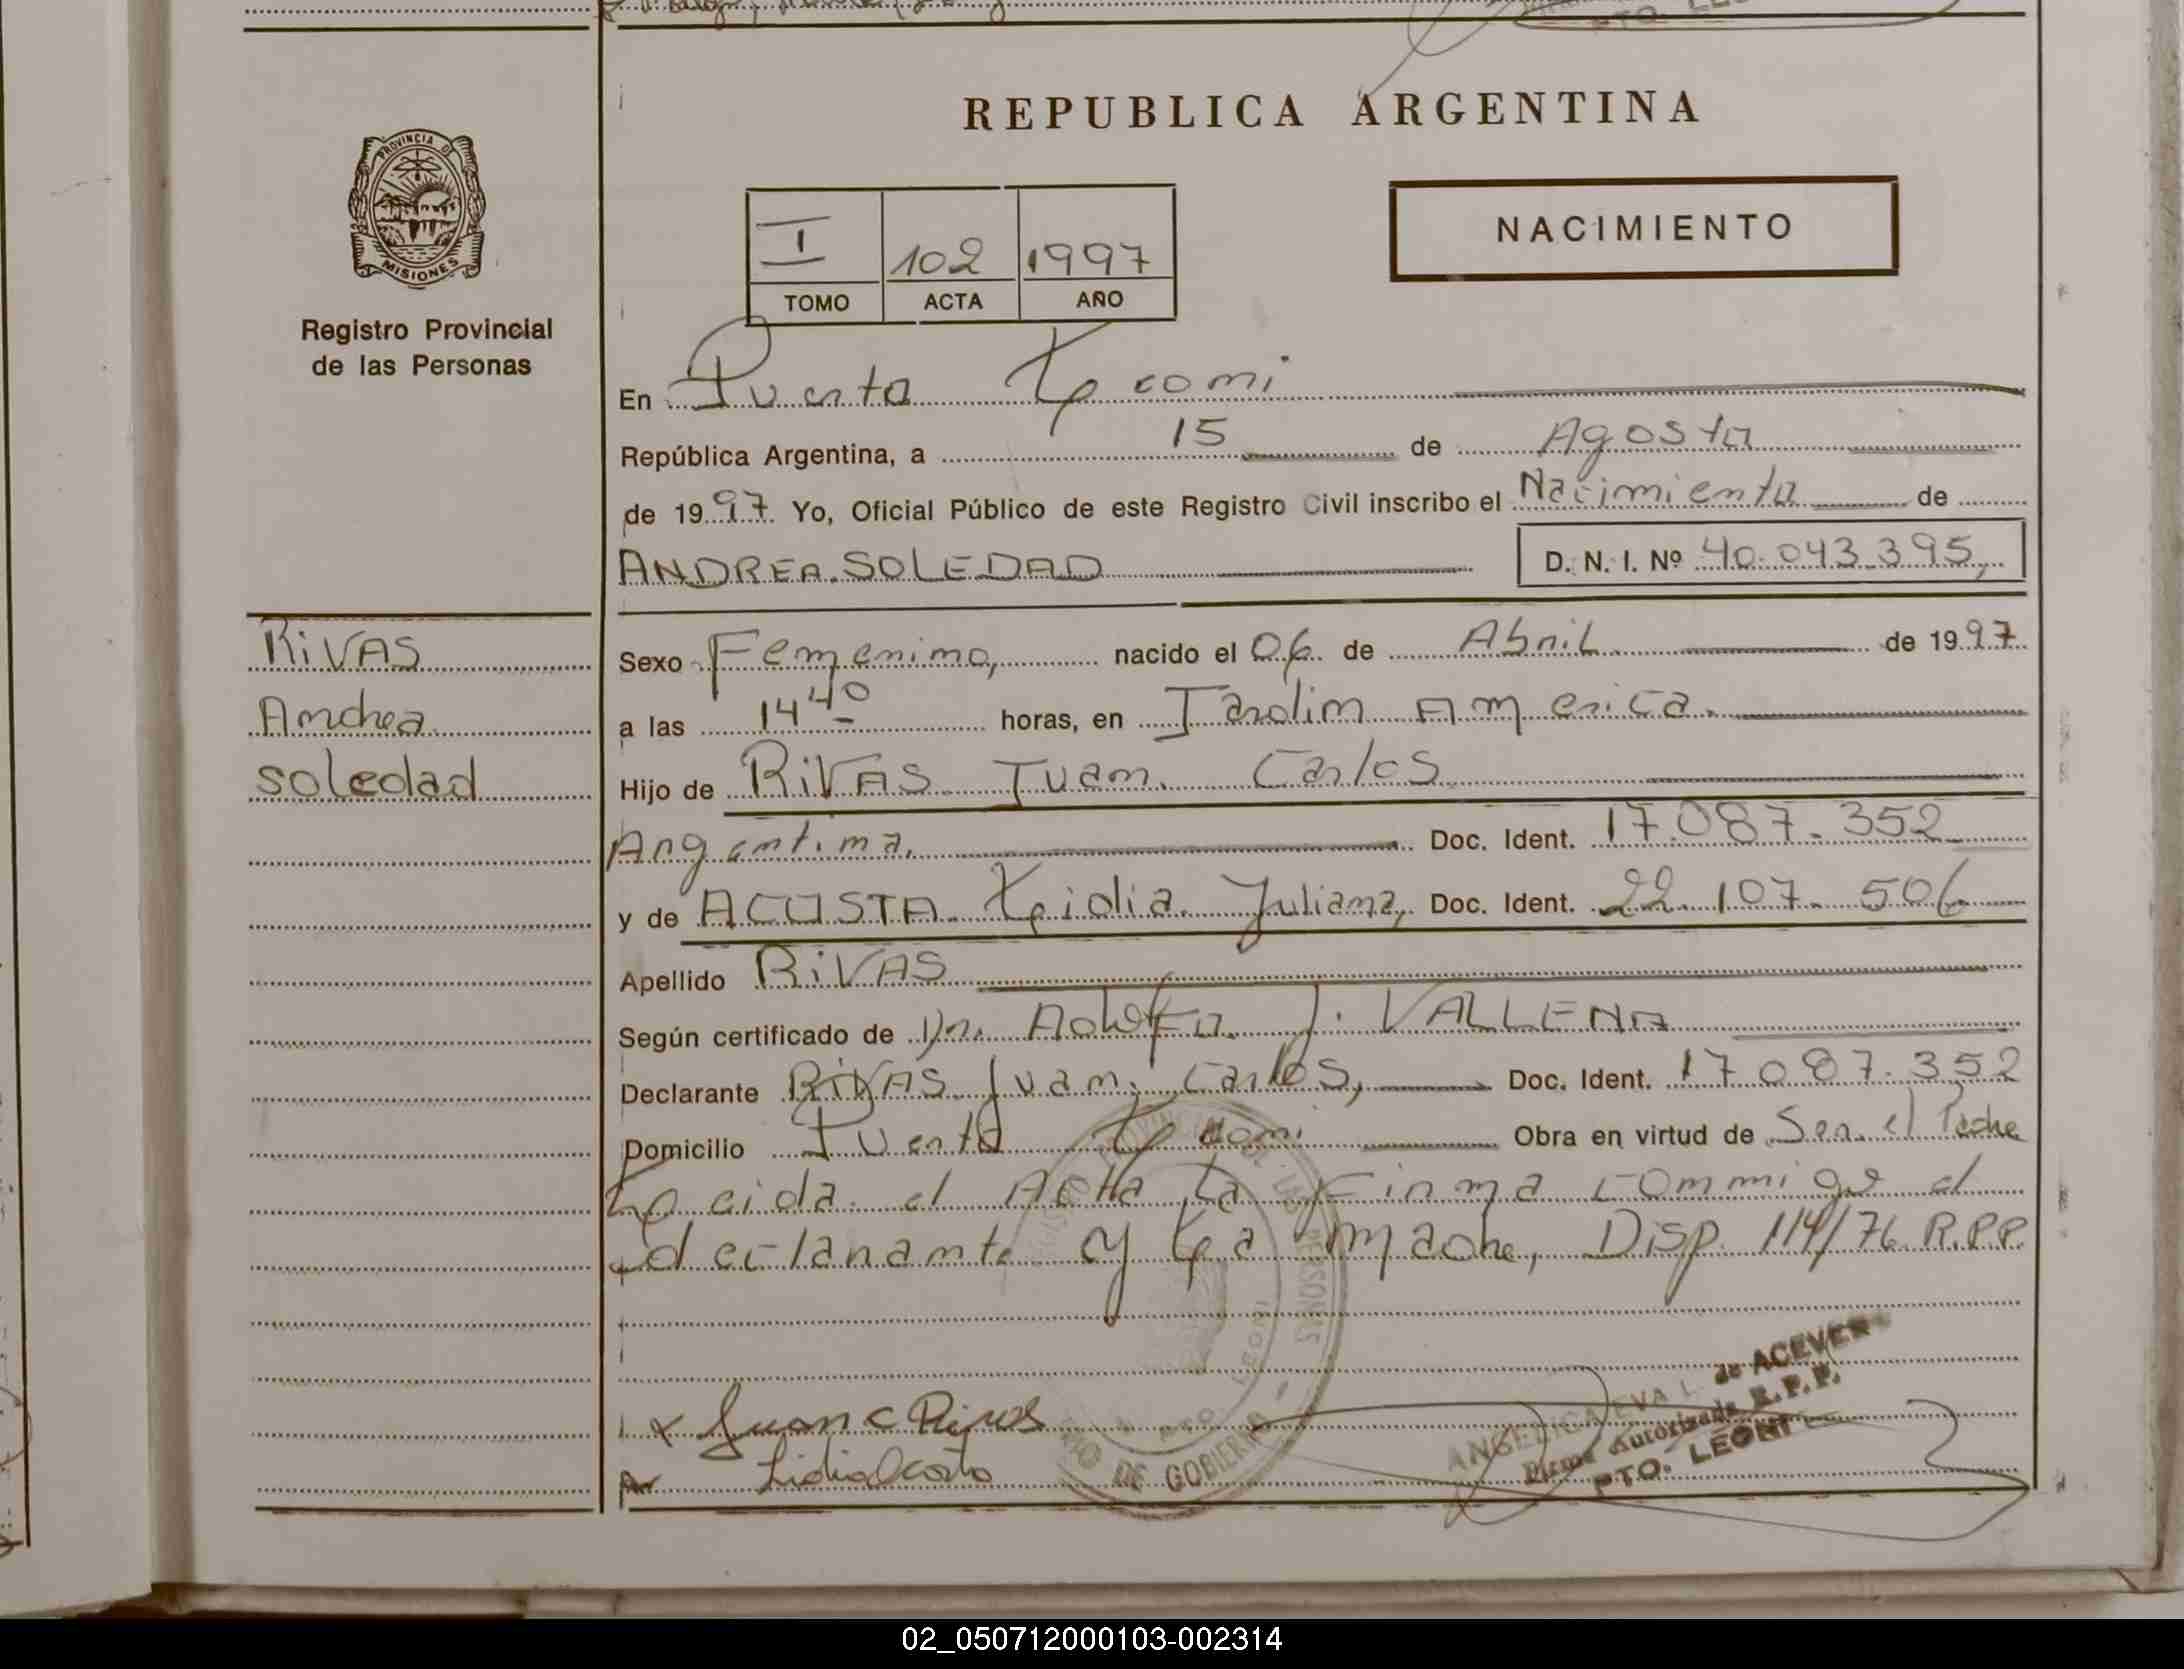 PROVINCIA DE
MISIONES
Registro Provincial
de las Personas
RIVAS
Andrea
Soledad
REPUBLICA ARGENTINA
I 102 1997
TOMO ACTA AÑO
NACIMIENTO
En Puerto Leoni
República Argentina, a 15 de Agosto
de 1997 Yo, Oficial Público de este Registro Civil inscribo el Nacimiento de
ANDREA SOLEDAD
D. N. I. Nº 40.043.395,
Sexo Femenino, nacido el 06 de Abril de 1997
a las 14 40 horas, en Jardin America.
Hijo de RIVAS Juan Carlos
Argentina, Doc. Ident. 17.087.352
y de ACOSTA Lidia Juliana, Doc. Ident. 22.107.506
Apellido RIVAS
Según certificado de Dr. Adolfo J. VALLENA
Declarante RIVAS Juan Carlos, Doc. Ident. 17.087.352
Domicilio Puerto Leoni Obra en virtud de Ser el Padre
Leida el Acta La Firma conmigo el
declarante y La Madre, Disp. 114/76 R.P.P.
x Juan C Rivas
Lidia Acosta
DE GOBIERNO
ANGELICA EVA L. de ACEVE
Firma Autorizada R.P.P.
PTO. LEONI
02_050712000103-002314